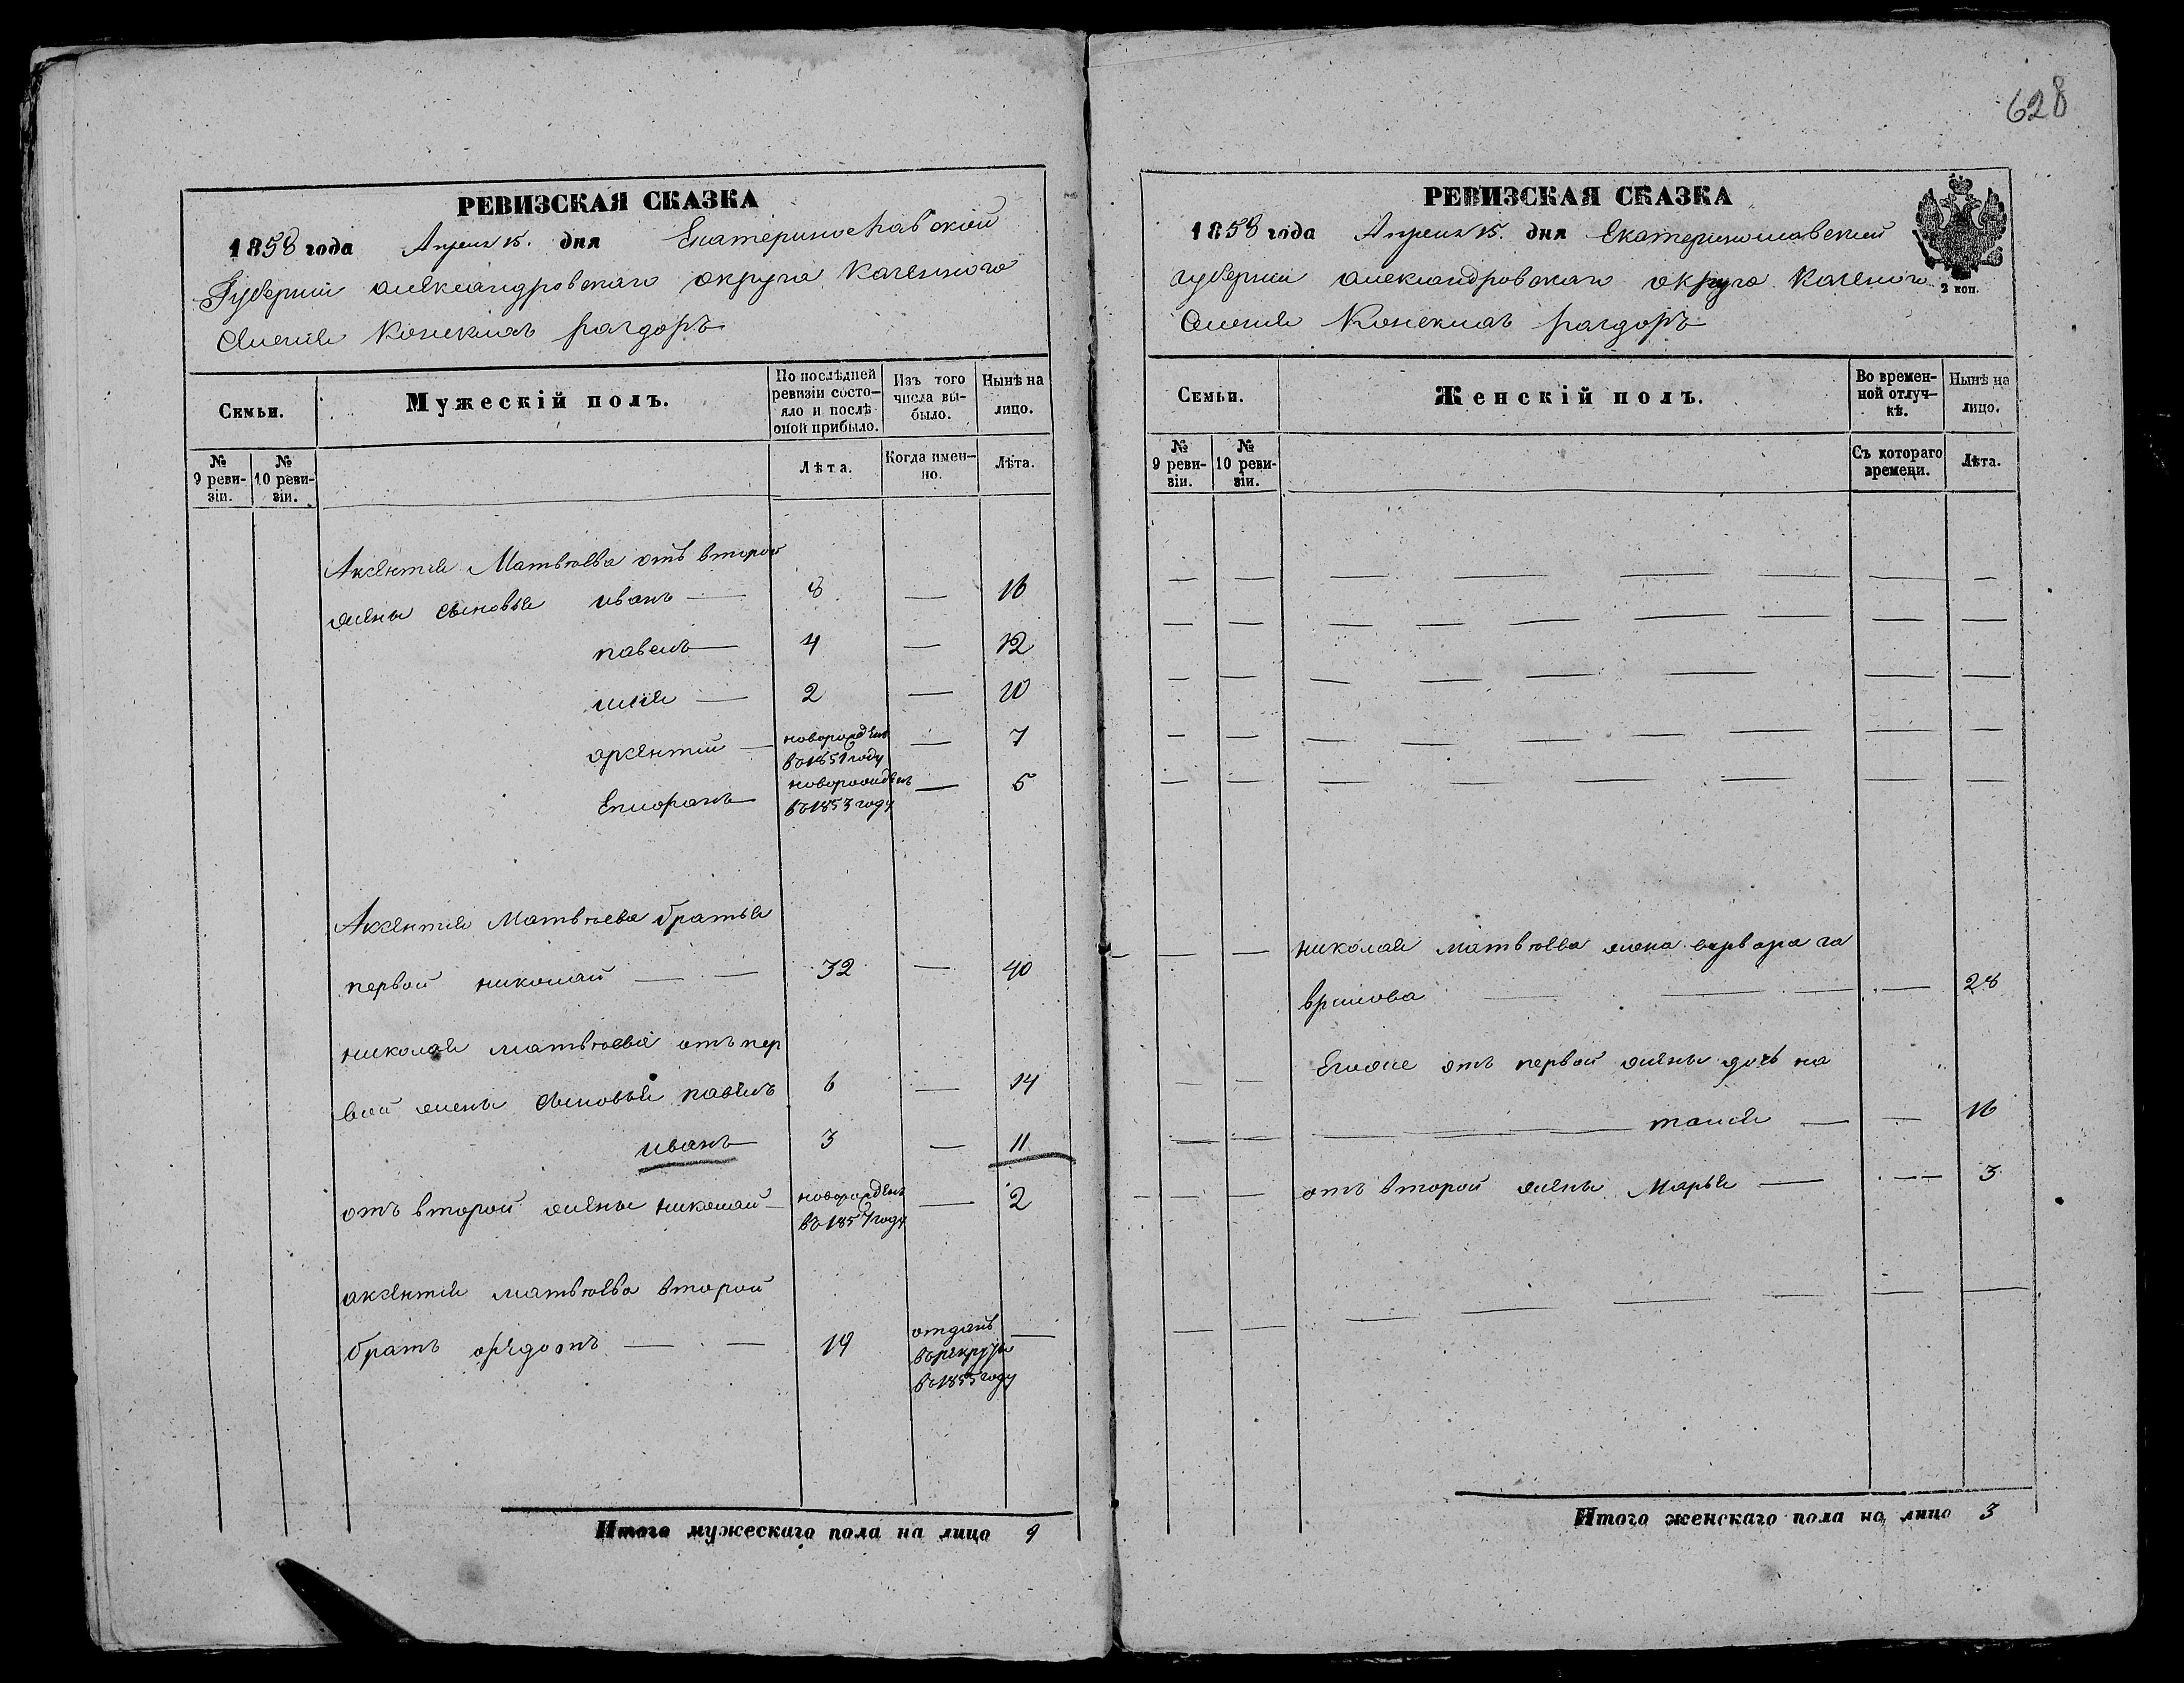 628
РЕВИЗСКАЯ СКАЗКА
1858 года Апреля 15. дня Екатеринославской
Губернии александровскаго округа Казенного
Селения Конских раздоръ
Семьи. Мужескій полъ. По послѣдней ревизіи состояло и послѣ оной прибыло. Изъ того числа выбыло. Нынѣ на лицо.
№ 9 ревизіи. № 10 ревизіи. Лѣта. Когда именно. Лѣта.
Аксентия Матвѣева отъ второй
жены сыновья иванъ — 8 — 16
павелъ — 4 — 12
илия — 2 — 10
арсентий — новорожденъ въ 1851 году — 7
новорожденъ въ 1853 году — 5
Аксентия Матвѣева братья
первой николай — — 32 — 40
николая матвѣева отъ пер
вой жены сыновья павелъ 6 — 14
иванъ 3 — 11
отъ второй жены николай — новорожденъ въ 1857 году — 2
аксентия матвѣева второй
братъ — — 19 отданъ въ рекруты в 1855 году —
Итого мужескаго пола на лицо 9
РЕВИЗСКАЯ СКАЗКА
1858 года Апреля 15. дня Екатеринославской
губернии александровскаго округа Казенного
2 коп.
Селения Конских раздоръ
Семьи. Женскій полъ. Во временной отлучкѣ. Нынѣ на лицо.
№ 9 ревизіи. № 10 ревизіи. Съ котораго времени. Лѣта.
николая матвѣева жена варвара га
врилова — — — — 28
Егоже отъ первой жены дочь на
талия — — 16
отъ второй жены Марья — — 3
Итого женскаго пола на лицо 3